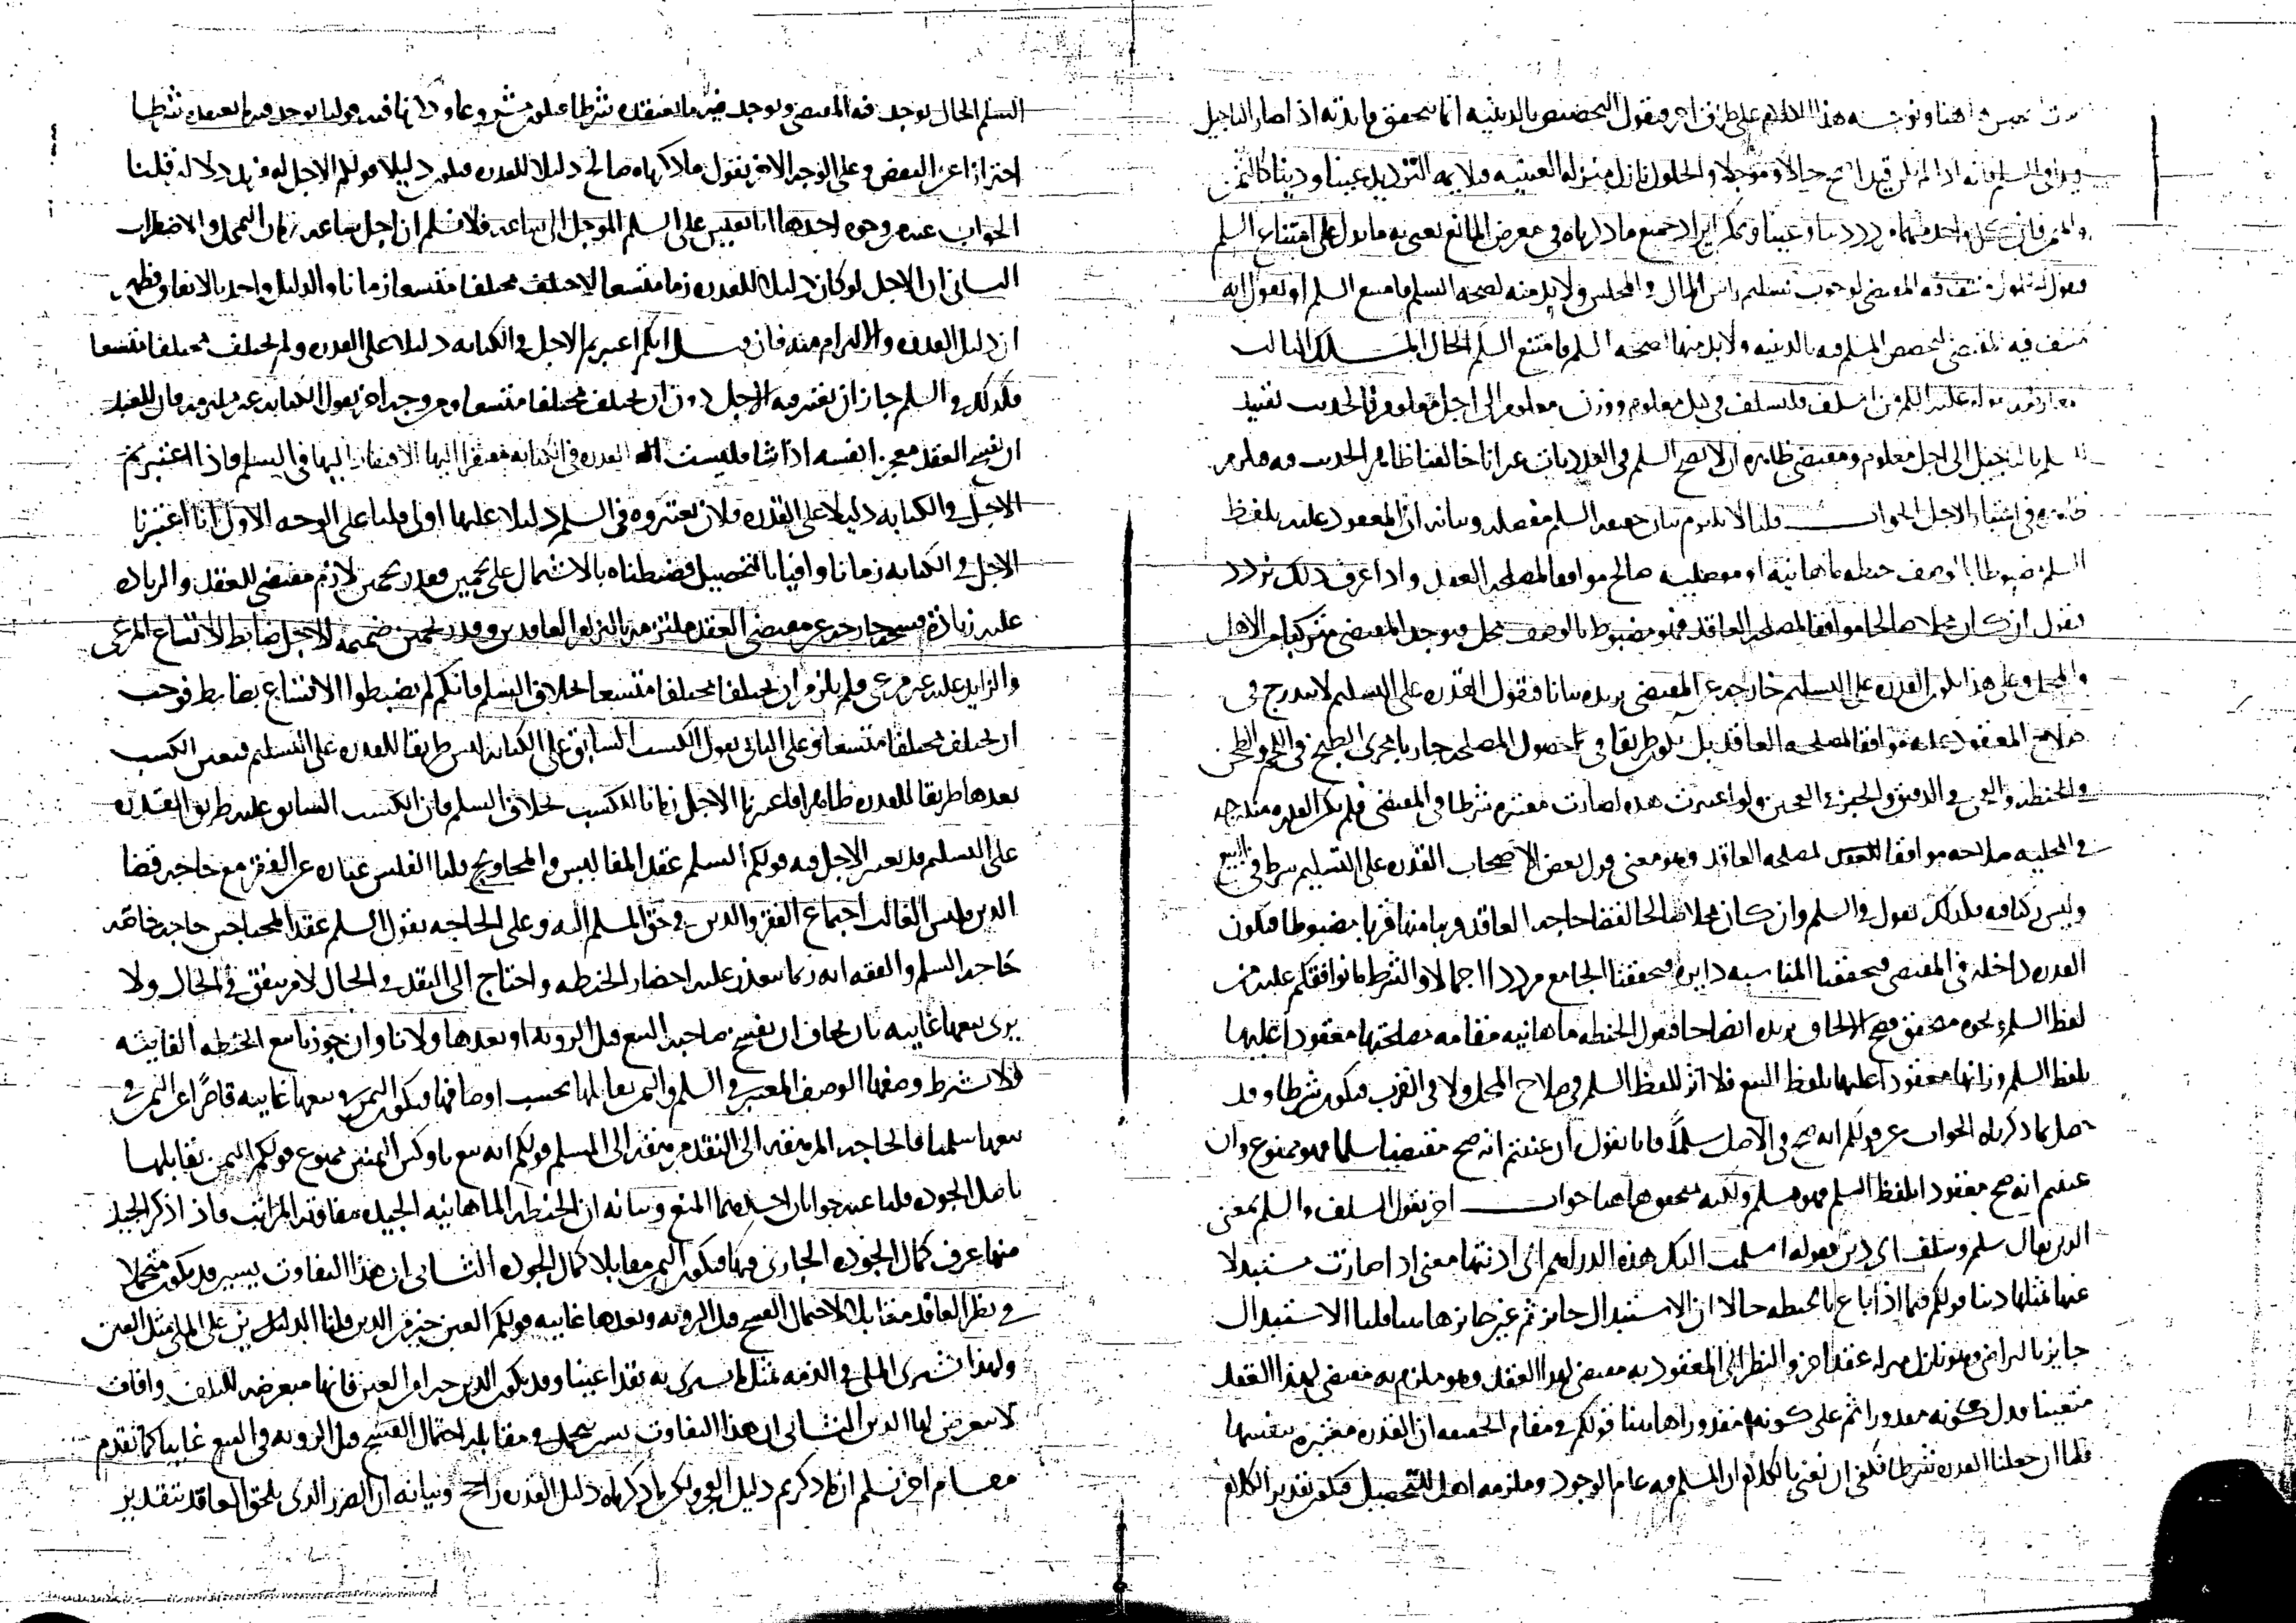 هذا الكلام على طرق اخر فيقول التخصيص بالدينيه انما تتحقق فايدته اذا صار التاجيل
في السلم فانه اذا لم يكن قيدا صح حالا وموجلا والحلول نازل منزله العينيه فلا يمه الترديد عينا ودينا كالثمن
واحد منهما دينا وعينا ويمكن ايراد جميع ما ذكرناه في معرض المانع نعني به ما يدل على امتناع السلم
فنقول المقتضي لوجوب تسليم راس المال في المجلس ولا بد منه لصحه السلم فامتنع السلم او نقول انه
منتف فيه المقتضي لتخصص المسلم فيه بالدينيه ولا بد منها لصحه السلم فامتنع السلم الحال المسلك الثالث
قوله عليه السلم من اسلف فليسلف في كيل معلوم ووزن معلوم الى اجل معلوم فالحديث تقييد
السلم بالتاجيل الى اجل معلوم ومقتضى ظاهره ان لا يصح السلم في العدديات غير انا خالفنا ظاهر الحديث فيه فلزم
في اشتراط الاجل الجواب قلنا لا بد من بيان حقيقه السلم مفصله وبيانه ان المعقود عليه بلفظ
السلم مضبوطا بالوصف حنطه ماهانيه او موصليه صالح موافقا لمصلحه العقد واذا عرف ذلك نردد
فنقول ان كان محلا صالحا موافقا لمصلحه العاقد فهو مضبوط بالوصف محل فيوجد المقتضي مركبا من الاهل
والمحل وعلى هذا يكون القدره على التسليم خارجه عن المقتضي نريده بيانا فنقول القدره على التسليم لا تندرج في
صلاح المعقود عليه موافقا لمصلحه العاقد بل يكون طريقا في حصول المصلحه جاريا مجرى الطبخ في اللحم والطحن
في الحنطه والعجن في الدقيق والخبز في العجين ولو اعتبرت هذه لصارت معتبره شرطا في المقتضي فلم يكن القدره مندرجه
في المحليه صلاحه موافقا للعقد لمصلحه العاقد وهو معنى قول بعض الاصحاب القدره على التسليم شرط في البيع
وليس ركنا فيه فكذلك نقول في السلم وان كان محلا صالحا لقضا حاجه العاقد قريبا منها قربا مضبوطا فتكون
القدره داخله في المقتضي فتحققنا المناسبه دايره وتحققنا الجامع مرددا اجمالا والشرط ما نوافقكم عليه من
لفظ السلم ونحوه متحقق فصح الالحاق نريده ايضاحا فنقول الحنطه ماهانيه مقامه مصلحتها معقودا عليها
بلفظ السلم وزانها معقودا عليها بلفظ البيع فلا اثر للفظ السلم في صلاح المحل ولا في القرب فيكون شرطا وقد
حصل بما ذكرناه الجواب عن قولكم انه صح في الاصل سلما فانا نقول ان عنيتم انه صح مقتضيا سلما فهو ممنوع وان
عنيتم انه صح معقودا بلفظ السلم فهو مسلم ولكنه متحقق هاهنا جواب اخر نقول السلف والسلم بمعنى
الدين يقال سلم وسلف اي دين فقوله اسلمت اليك هذه الدراهم اي ادنتها معنى اذا صارت مستبدلا
عنها مثلها دينا قولكم فيما اذا باع بالحنطه حالا ان الاستبدال جائز ثم غير جائز هاهنا قلنا الاستبدال
جايز بالتراضي وهو نازل منزله عقد اخر والنظر الى المعقود به مقتضى لهذا العقد وهو ملزم به مقتضى لهذا العقد
متعينا فدل كونه مقدورا ثم على كونه مقدورا هاهنا قولكم في مقام الحقيقه ان القدره معتبره بنفسها
قلنا ان جعلنا القدره شرطا فيكفي ان نعني بالكلام ان المسلم فيه عام الوجود وملزمه اهل للتحصيل فيكون تقدير الكلام
السلم الحال يوجد فيه المقتضي ويوجد فيه ما يعتقده شرطا فيكون مشروعا وكان فيه قولنا يوجد فيه ما يعتقده شرطا
احترازا عن النقض وعلى الوجه الاخر نقول ما ذكرناه صالح دليلا للقدره فيكون دليلا قولكم الاجل له مزيد دلاله قلنا
الجواب عنه من وجوه احدها انا نقيس على السلم الموجل الى ساعه فلا نسلم ان اجل ساعه زمان التمحل والاضطراب
الثاني ان الاجل لو كان دليلا للقدره زمانا متسعا لاختلف مختلفا متسعا زمانا والدليل واحد بالاتفاق فظهر
ان دليل القدره والالتزام منه فان قيل انكم اعتبرتم الاجل في الكتابه دليلا على القدره ولم يختلف مختلفا متسعا
فكذلك في السلم جاز ان يعتبر فيه الاجل دون ان يختلف مختلفا متسعا ومن وجه اخر نقول الكتابه غير ملزمه فان للعبد
ان يفسخ العقد معجزا نفسه اذا شا فليست القدره في الكتابه مفتقرا اليها الافتقار اليها في السلم فاذا اعتبرتم
الاجل في الكتابه دليلا على القدره فلان تعتبروه في السلم دليلا عليها اولى قلنا على الوجه الاول انا اعتبرنا
الاجل في الكتابه زمانا وافيا بالتحصيل فضبطناه بالاشتمال على نجمين فقدر نجمين لازم مقتضى للعقد والزياده
عليه زياده خارجه عن مقتضى العقد ملتزمه بالتزام العاقدين وقدر نجمين ضميمه للاجل ضابط للاتساع المرعي
والزايد عليه غير مرعي فلم يلزم ان يختلف مختلفا متسعا بخلاف السلم فانكم لم تضبطوا الاتساع بضابط فوجب
ان يختلف مختلفا متسعا وعلى الثاني نقول الكسب السابق على الكتابه ليس طريقا للقدره على التسليم فتعين الكسب
بعدها طريقا للقدره ظاهرا فاعتبرنا الاجل زمانا للكسب بخلاف السلم فان الكسب السابق عليه طريق القدره
على التسليم فلم يعتبر الاجل فيه قولكم السلم عقد المفاليس والمحاويج قلنا الفلس عباره عن الفقر مع حاجه قضا
الدين وليس الغالب اجتماع الفقر والدين في حق المسلم اليه وعلى الحاجه نقول السلم عقد المحتاجين حاجه خاصه
حاجه السلم والفقه انه ربما يتعذر عليه احضار الحنطه واحتاج الى النقد في الحال لامر يتفق في الحال ولا
يرى بيعها غايبه بان يخاف ان يفسخ صاحبه البيع قبل الرويه او بعدها ولانا وان جوزنا بيع الحنطه الغايبه
فلا نشرط وصفها الوصف المعتبر في السلم والثمن يقابلها بحسب اوصافها فيكون الثمن في بيعها غايبه قاصرا عن الثمن في
بيعها سلما فالحاجه المرتفقه الى النقد مرتفقه الى السلم قولكم انه بيع باوكس الثمنين ممنوع قولكم الثمن يقابلها
باصل الجوده قلنا عنه جوابان احدهما المنع وبيانه ان الحنطه الماهانيه الجيده متفاوته المراتب فاذا ذكر الجيد
منها عرف كمال الجوده الجاري فيها فيكون الثمن مقابلا كمال الجوده الثاني ان هذا التفاوت يسير قد يكون متحملا
في نظر العاقد مقابلا لاحتمال الفسخ قبل الرويه وبعدها غايبه قولكم العين خير من الدين قلنا الدين على الملي مثل العين
ولهذا يشتري الملي في الذمه بمثل ما يشتري به نقدا عينا وقد يكون الدين خيرا من العين فانها متعرضه للتلف وافات
لا يتعرض لها الدين الثاني ان هذا التفاوت يسير متحمل في مقابله احتمال الفسخ قبل الرويه في البيع غايبا كما تقدم
مقام اخر نسلم ان ما ذكرتم دليل العجز ولكن ما ذكرناه دليل القدره راجح وبيانه ان الضرر الذي يلحق العاقد بتقدير